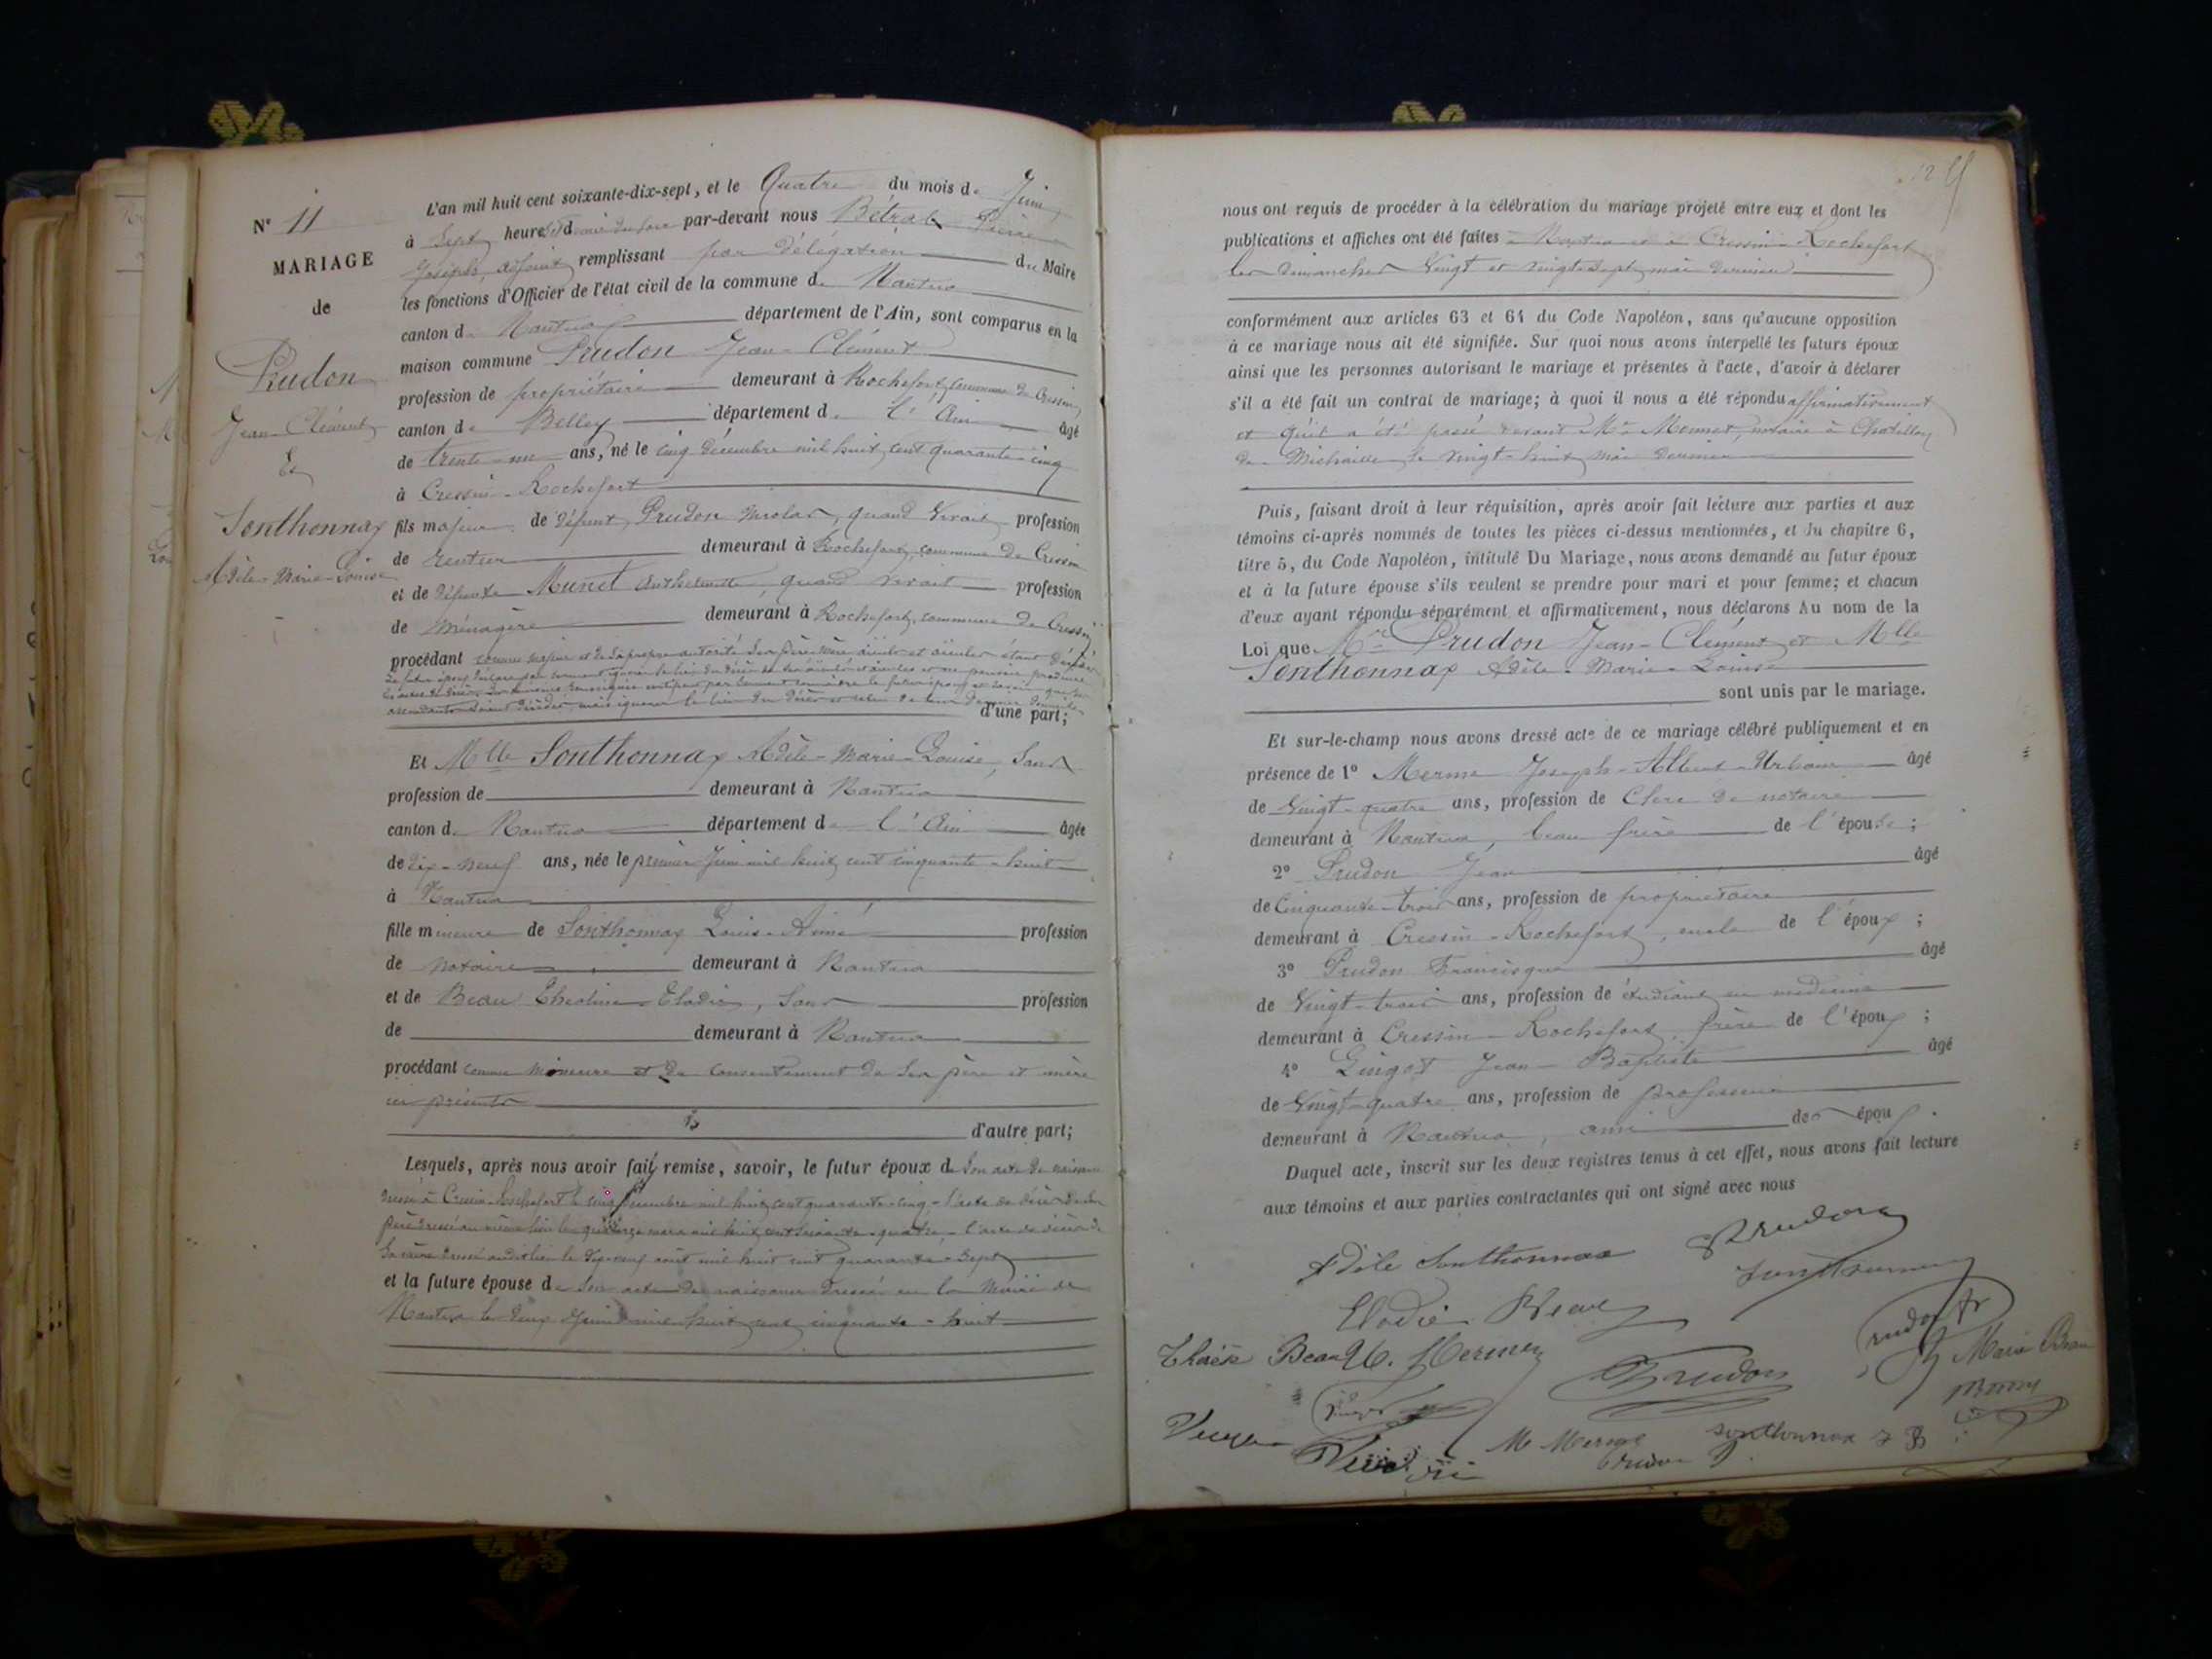 N° 11
MARIAGE
de
Prudon
Jean-Clément
Et
Sonthonnax
Adèle-Marie-Louise
L'an mil huit cent soixante-dix-sept, et le Quatre du mois de Juin,
à Sept heures et demie du soir par-devant nous Bétrab Pierre
Joseph, adjoint remplissant par délégation du Maire
les fonctions d'Officier de l'état civil de la commune de Nantua
canton de Nantua département de l'Ain, sont comparus en la
maison commune Prudon Jean-Clément
profession de propriétaire demeurant à Rochefort, commune de Cressin
canton de Belley département de l'Ain âgé
de trente-un ans, né le cinq décembre mil huit cent quarante-cinq
à Cressin-Rochefort
fils majeur de défunt Prudon Nicolas, quand vivait profession
de rentier demeurant à Rochefort, commune de Cressin
et de défunte Munet Anthelmette, quand vivait profession
de ménagère demeurant à Rochefort, commune de Cressin
procédant comme majeur et de sa propre autorité ses père, mère, aïeuls et aïeules étant décédés
d'une part;
Et Mlle Sonthonnax Adèle-Marie-Louise, Sans
profession de demeurant à Nantua
canton de Nantua département de l'Ain âgée
de dix-neuf ans, née le premier Juin mil huit cent cinquante-huit
à Nantua
fille mineure de Sonthonnax Louis-Aimé profession
de notaire demeurant à Nantua
et de Beau Elodie, Sans profession
de demeurant à Nantua
procédant comme mineure et du consentement de ses père et mère
ici présents
d'autre part;
Lesquels, après nous avoir fait remise, savoir, le futur époux de son acte de naissance
dressé à Cressin-Rochefort le cinq décembre mil huit cent quarante-cinq - l'acte de décès de son
père dressé au même lieu le quinze mars mil huit cent soixante-quatre, - l'acte de décès de
sa mère dressé audit lieu le dix-neuf août mil huit cent quarante-sept
et la future épouse de son acte de naissance dressé en la Mairie de
Nantua le deux Juin mil huit cent cinquante-huit
nous ont requis de procéder à la célébration du mariage projeté entre eux et dont les
publications et affiches ont été faites à Nantua et à Cressin-Rochefort
les dimanches Vingt et vingt-sept mai dernier
conformément aux articles 63 et 64 du Code Napoléon, sans qu'aucune opposition
à ce mariage nous ait été signifiée. Sur quoi nous avons interpellé les futurs époux
ainsi que les personnes autorisant le mariage et présentes à l'acte, d'avoir à déclarer
s'il a été fait un contrat de mariage; à quoi il nous a été répondu affirmativement
et qu'il a été passé devant Me Monnet, notaire à Chatillon
de Michaille le vingt-huit mai dernier
Puis, faisant droit à leur réquisition, après avoir fait lecture aux parties et aux
témoins ci-après nommés de toutes les pièces ci-dessus mentionnées, et du chapitre 6,
titre 5, du Code Napoléon, intitulé Du Mariage, nous avons demandé au futur époux
et à la future épouse s'ils veulent se prendre pour mari et pour femme; et chacun
d'eux ayant répondu séparément et affirmativement, nous déclarons Au nom de la
Loi que Mr Prudon Jean-Clément et Mlle
Sonthonnax Adèle-Marie-Louise
sont unis par le mariage.
Et sur-le-champ nous avons dressé acte de ce mariage célébré publiquement et en
présence de 1° Merme Joseph-Albert-Urbain âgé
de Vingt-quatre ans, profession de Clerc de notaire
demeurant à Nantua, beau frère de l'épouse;
2° Prudon Jean âgé
de Cinquante-trois ans, profession de propriétaire
demeurant à Cressin-Rochefort, oncle de l'époux;
3° Prudon Francisque âgé
de Vingt-trois ans, profession de étudiant en médecine
demeurant à Cressin-Rochefort, frère de l'époux;
4° Gingot Jean-Baptiste âgé
de Vingt-quatre ans, profession de professeur
demeurant à Nantua, ami des époux.
Duquel acte, inscrit sur les deux registres tenus à cet effet, nous avons fait lecture
aux témoins et aux parties contractantes qui ont signé avec nous
Adèle Sonthonnax Prudon
Elodie Beau
Beau Merme Prudon Marie Beau
M Merme Sonthonnax